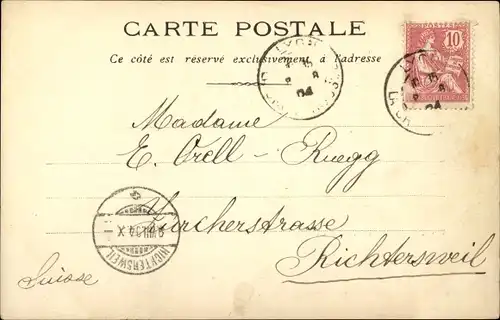 CARTE POSTALE
Ce côté est réservé exclusivement à l'adresse
LYON
04
POSTES
10
LYON
04
Madame
E. Orell - Ruegg
Zürcherstrasse
Richtersweil
Suisse
RICHTERSWEIL
9.VIII.04.X